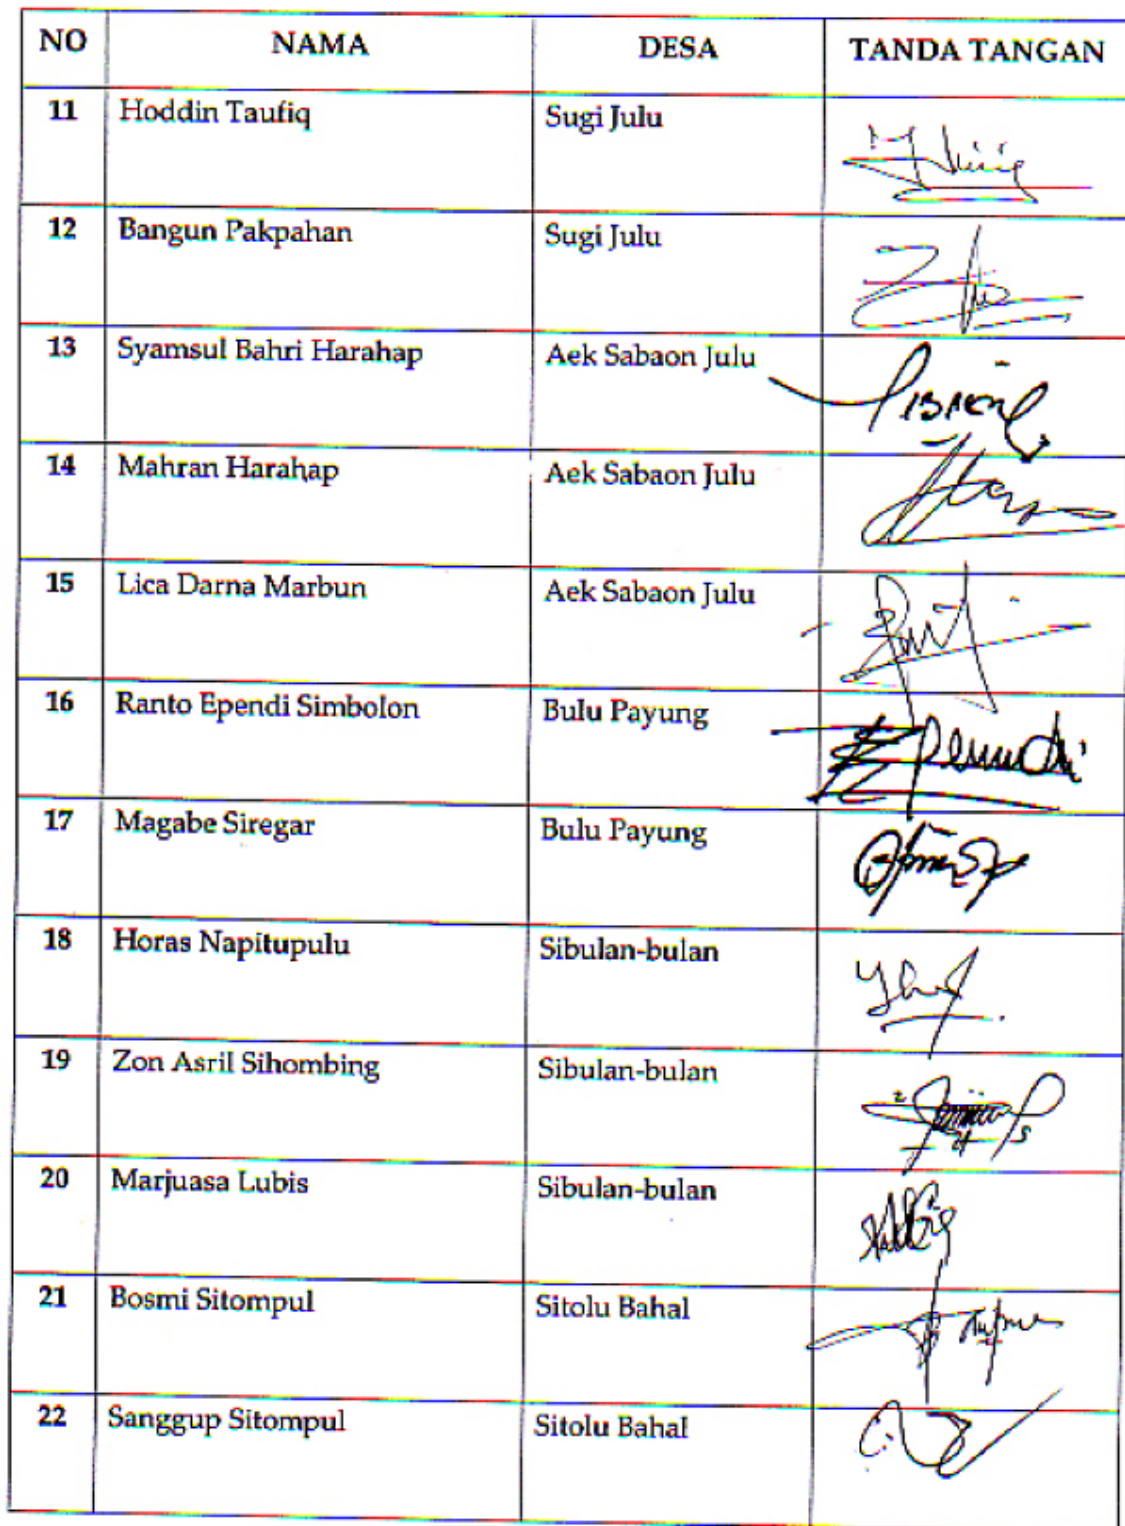 NO NAMA DESA TANDA TANGAN
11 Hoddin Taufiq Sugi Julu
12 Bangun Pakpahan Sugi Julu
13 Syamsul Bahri Harahap Aek Sabaon Julu
14 Mahran Harahap Aek Sabaon Julu
15 Lica Darna Marbun Aek Sabaon Julu
16 Ranto Ependi Simbolon Bulu Payung
17 Magabe Siregar Bulu Payung
18 Horas Napitupulu Sibulan-bulan
19 Zon Asril Sihombing Sibulan-bulan
20 Marjuasa Lubis Sibulan-bulan
21 Bosmi Sitompul Sitolu Bahal
22 Sanggup Sitompul Sitolu Bahal